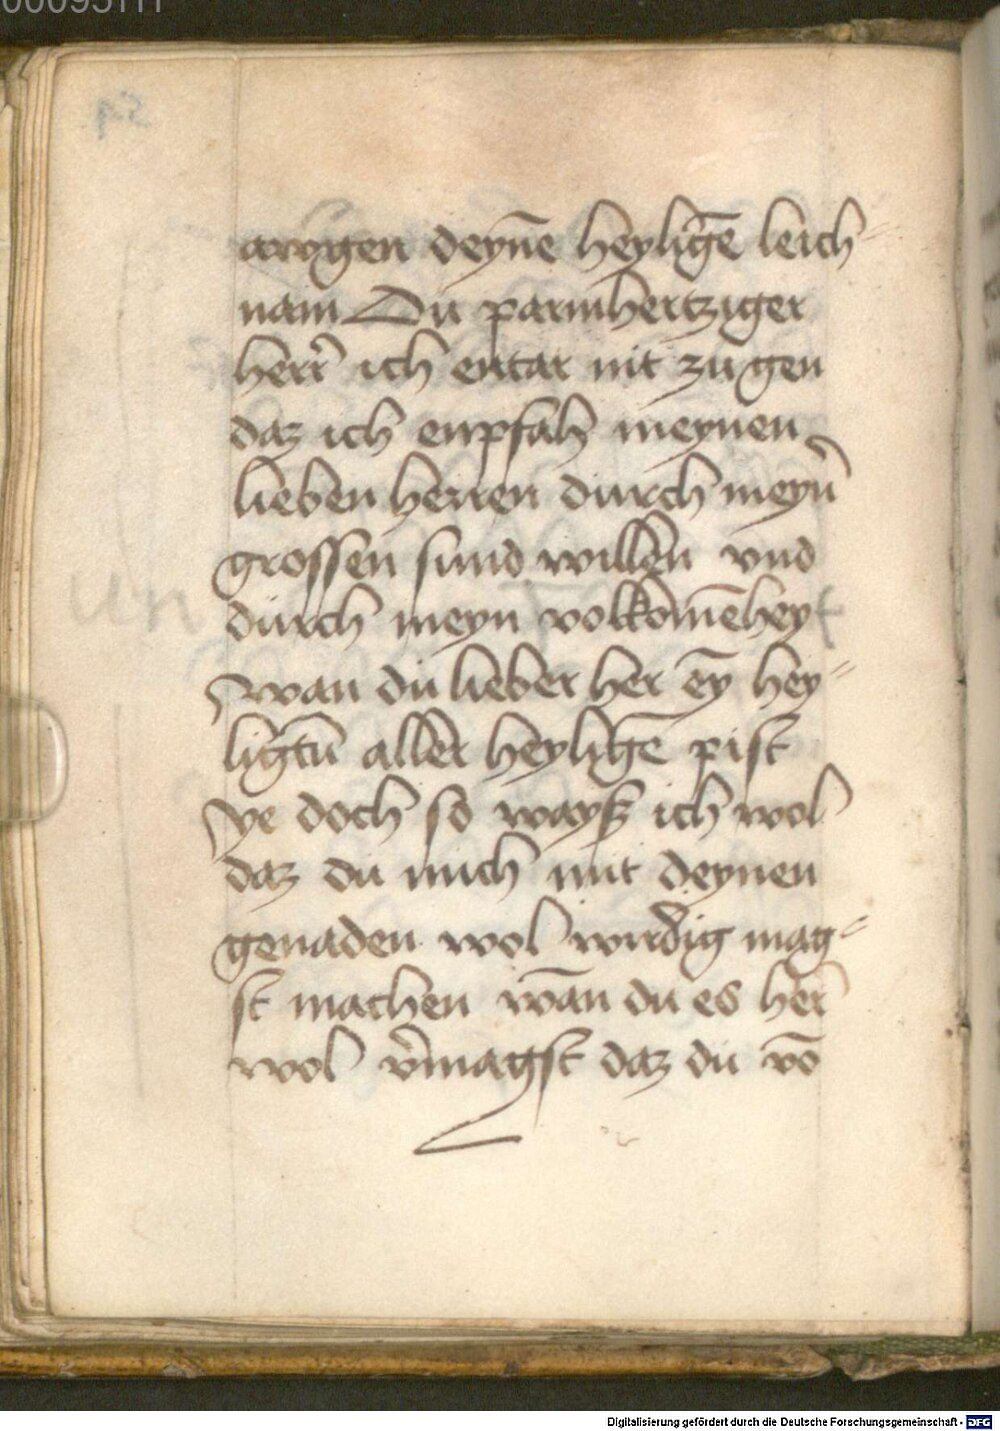 awgen deynē heyligē leich⸗
nam Du parmhertziger
herr̄ ich entar nit zu gen
daz ich enpfah meynen
lieben herren durch meyn̄
grossen sund willen vnd
durch meyn volkomēhey t
wan du lieber her eȳ hey⸗
ligtū aller heyligē pist
ye doch so wayß ich wol
daz du mich mit deynen
genaden wol wirdig mag⸗
st machen wān du es her̄
wol v̄magst daz du vō
un
Digitalisierung gefördert durch die Deutsche Forschungsgemeinschaft - DFG